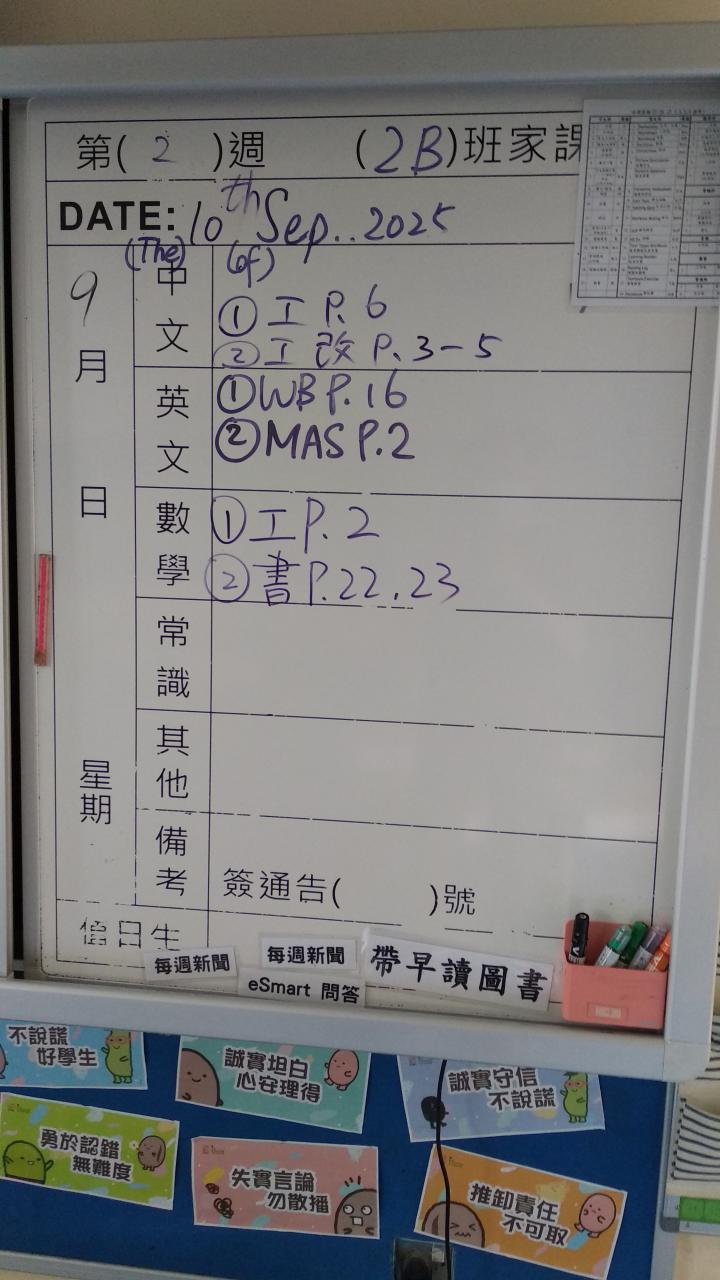 第( 2 )週 (2B)班家課
DATE: 10th Sep.. 2025
(The) (of)
9月 日 星期
中文
① 工 P. 6
② 工 改 P. 3-5
英文
① WB P. 16
② MAS P. 2
數學
① 工 P. 2
② 書 P. 22. 23
常識
其他
備考
簽通告( )號
值日生
每週新聞
每週新聞
eSmart 問答
帶早讀圖書
不說謊
好學生
誠實坦白
心安理得
誠實守信
不說謊
勇於認錯
無難度
失實言論
勿散播
推卸責任
不可取